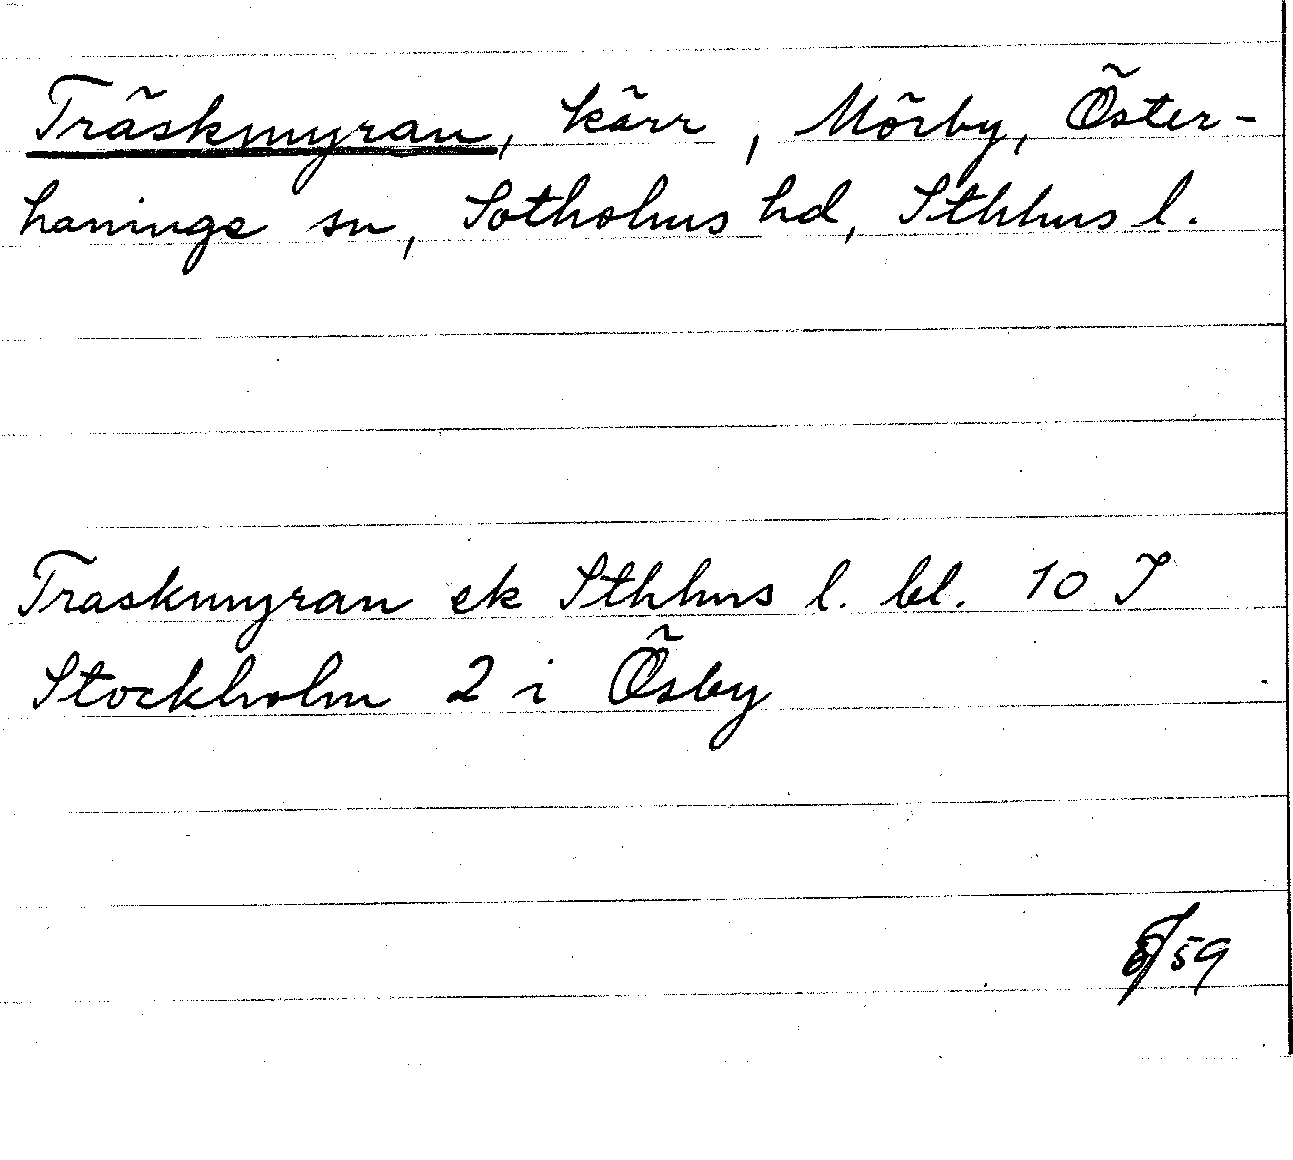 Träskmyran, kärr, Mörby, Öster-
haninge sn, Sotholms hd, Sthlms l.
Traskmyran ek Sthlms l. bl. 10 J
Stockholm 2 i Ösby
/59